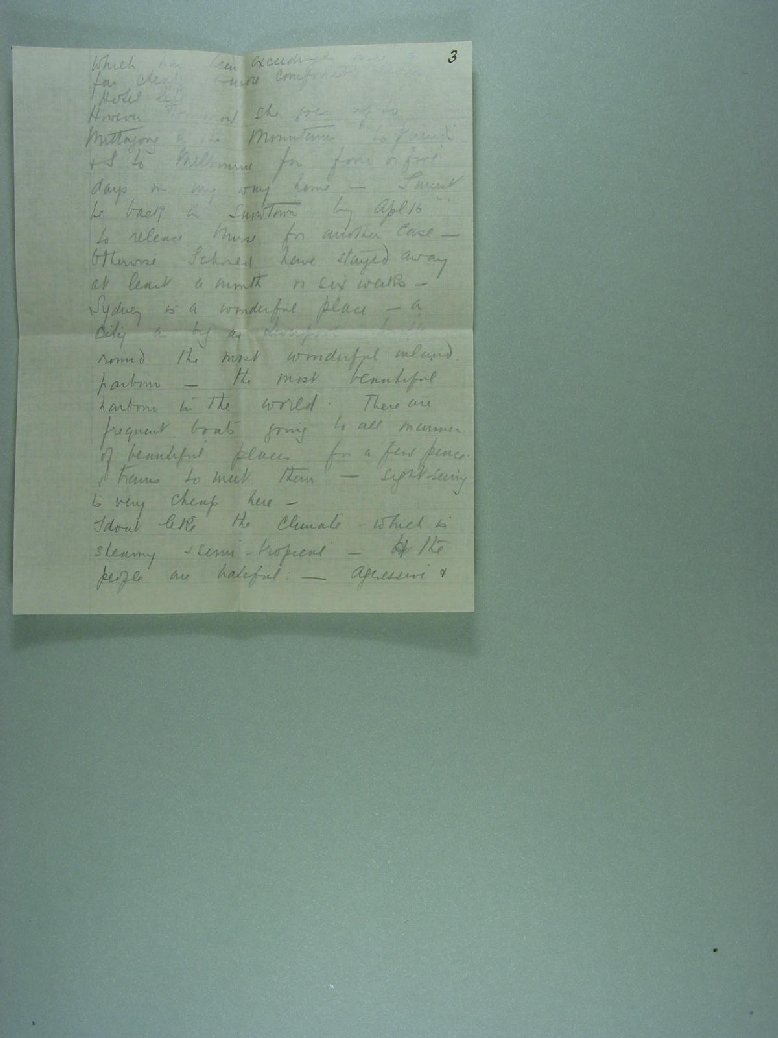 3
which has been exceedingly
far cheaper & more comfortable
Hotel life
However she goes off
Mittagong in the Mountains to friends
& I to Melbourne for four or five
days on my way home — I must
be back in by Apl 16
to release Nurse for another case —
Otherwise I should have stayed away
at least a month or six weeks —
Sydney is a wonderful place — a
city as big as built
round the most wonderful inland
harbour — the most beautiful
harbour in the world. There are
frequent boats going to all manner
of beautiful places for a few pence
& trams to meet them — sight-seeing
is very cheap here —
I dont like the climate - which is
steamy & semi-tropical — the
people are hateful. — agressive &